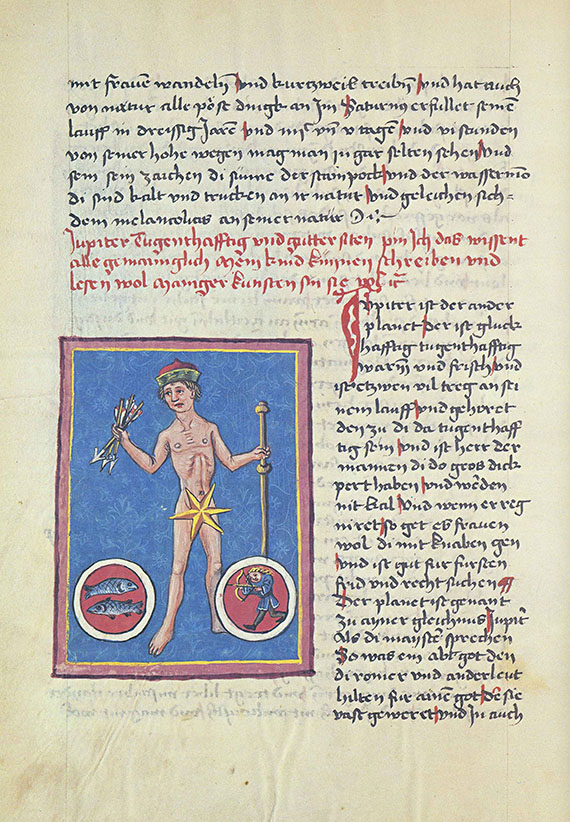 mit frawen wandeln und kurtzweil treibn und hat auch
von natur alle pöse dingk an im Saturnus erfullet seinē
lauff in dreissig Jarē und mit vnd v tagen und vi stunden
von seiner hohe wegen mag man in gar selten sehen und
sem sein zaichen di sunne der stainpock und der wasserman
di sind kalt und trucken an ir natur und geleuchen sich
dem melancolicus an seiner natur
Jupiter Tugenthafftig und gutter siten pin ich das wissent
alle gemainiglich Mein kind künnen schreiben und
lesen wol Maniger kunsten sin sie vol
Jupiter ist der ander
planet der ist gluck
hafftig tugenthafftig
warm und frisch und
ist etzwen vil treg an sei
nem lauff und gehoret
den zu di da tugenthaff
tig sein und ist herr der
mannen di do gros dick
pert haben und werden
nit kal Und wenn er reg
niret so get es frauen
wol di mit knaben gen
und ist gut für fursten
frid und recht suchen
Der planet ist genant
zu ainer gleichnus Jupiter
Als di maister sprechen
So was ein abtgot den
di romer und ander leut
hilten für ainen got der sie
vast geweret und in auch